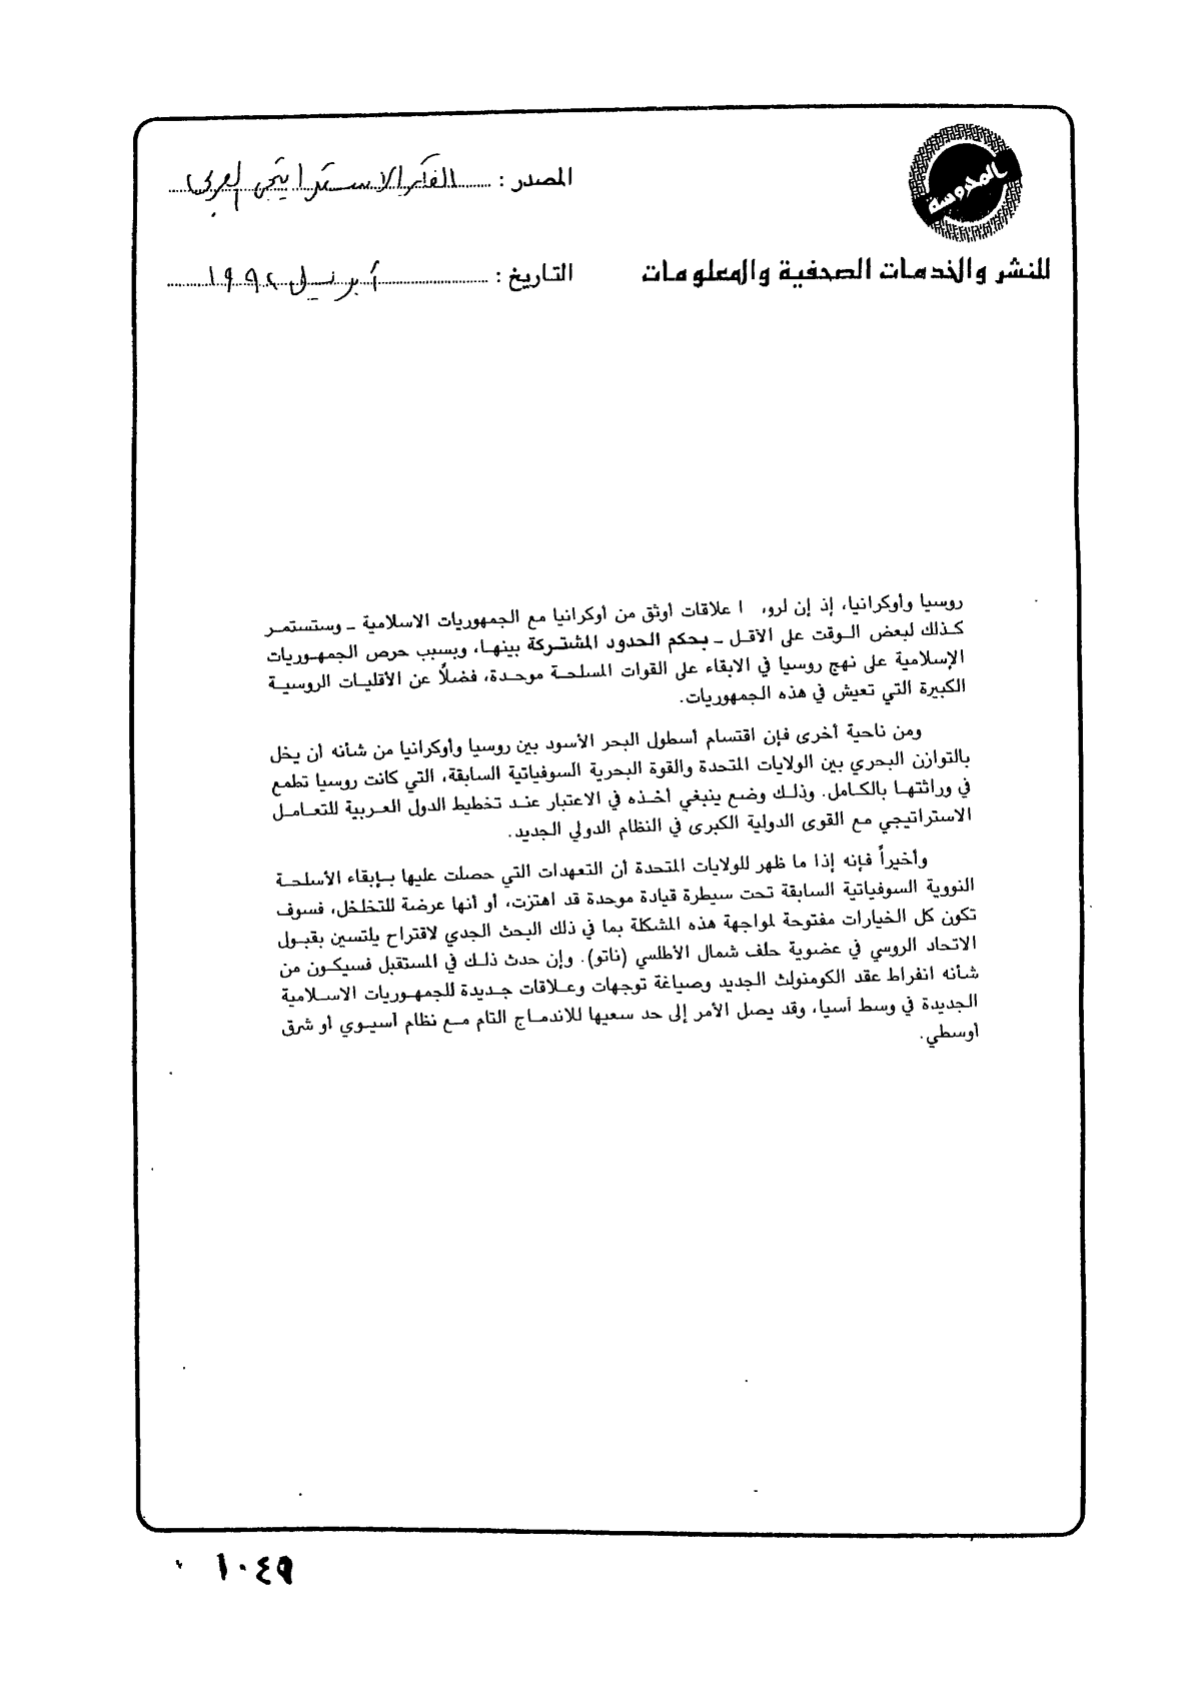 المدوسة
للنشر والخدمات الصحفية والمعلومات
المصدر : الفكر الاستراتيجي العربي
التاريخ : أبريل ١٩٩٢
روسيا وأوكرانيا، إذ إن لرو ا علاقات أوثق من أوكرانيا مع الجمهوريات الاسلامية ــ وستستمر
كذلك لبعض الوقت على الأقل ــ بحكم الحدود المشتركة بينها، وبسبب حرص الجمهوريات
الإسلامية على نهج روسيا في الابقاء على القوات المسلحة موحدة، فضلاً عن الأقليات الروسية
الكبيرة التي تعيش في هذه الجمهوريات.
ومن ناحية أخرى فإن اقتسام أسطول البحر الأسود بين روسيا وأوكرانيا من شأنه أن يخل
بالتوازن البحري بين الولايات المتحدة والقوة البحرية السوفياتية السابقة، التي كانت روسيا تطمع
في وراثتها بالكامل. وذلك وضع ينبغي أخذه في الاعتبار عند تخطيط الدول العربية للتعامل
الاستراتيجي مع القوى الدولية الكبرى في النظام الدولي الجديد.
وأخيراً فإنه إذا ما ظهر للولايات المتحدة أن التعهدات التي حصلت عليها بإبقاء الأسلحة
النووية السوفياتية السابقة تحت سيطرة قيادة موحدة قد اهتزت، أو أنها عرضة للتخلخل، فسوف
تكون كل الخيارات مفتوحة لمواجهة هذه المشكلة بما في ذلك البحث الجدي لاقتراح يلتسين بقبول
الاتحاد الروسي في عضوية حلف شمال الأطلسي (ناتو). وإن حدث ذلك في المستقبل فسيكون من
شأنه انفراط عقد الكومنولث الجديد وصياغة توجهات وعلاقات جديدة للجمهوريات الاسلامية
الجديدة في وسط آسيا، وقد يصل الأمر إلى حد سعيها للاندماج التام مع نظام آسيوي أو شرق
أوسطي.
١٠٤٩